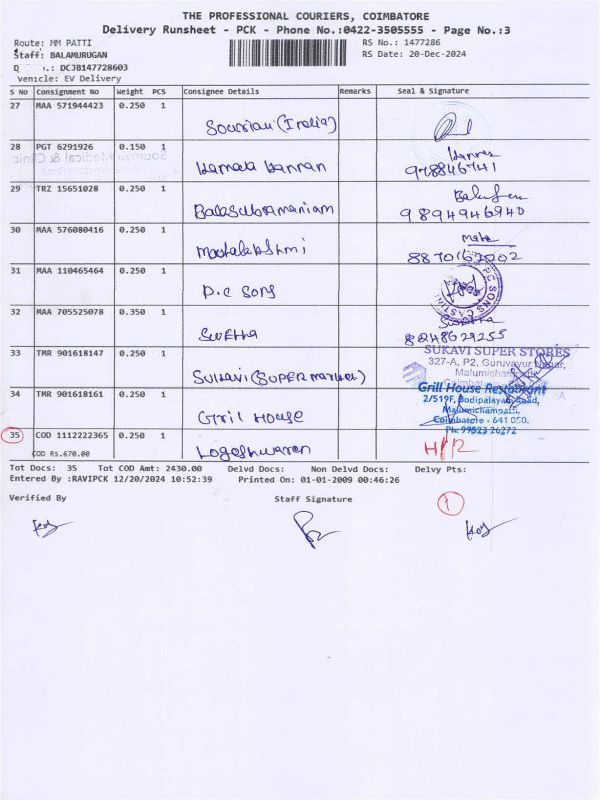 THE PROFESSIONAL COURIERS, COIMBATORE
Delivery Runsheet - PCK - Phone No.:0422-3505555 - Page No.:3
Route: MM PATTI
RS No.: 1477286
Staff: BALAMURUGAN
RS Date: 20-Dec-2024
DCJB147728603
Vehicle: EV Delivery
S No Consignment No Weight PCS Consignee Details Remarks Seal & Signature
27 MAA 571944423 0.250 1
28 PGT 6291926 0.150 1
Kannan
Hamala Kannan 978846741
29 TRZ 15651028 0.250 1
Balasubramaniam 9894946940
30 MAA 576080416 0.250 1
Maha
Mahalakshmi 8870162202
31 MAA 110465464 0.250 1
P.C SONS
32 MAA 705525078 0.350 1
Swetha
Swetha 8248629255
33 TMR 901618147 0.250 1
SUKAVI SUPER STORES
327-A, P2, Guruvayur Nagar,
Malumichampatti
Sukavi (SUPER market)
34 TMR 901618161 0.250 1
Grill House Restaurant
2/519F, Podipalayam Road,
Malumichampatti,
Coimbatore - 641 050.
Ph: 99523 26272
Gril House
35 COD 1112222365 0.250 1
COD Rs.670.00
Logeshwaran
Tot Docs: 35 Tot COD Amt: 2430.00 Delvd Docs: Non Delvd Docs: Delvy Pts:
Entered By :RAVIPCK 12/20/2024 10:52:39 Printed On: 01-01-2009 00:46:26
Verified By Staff Signature
1